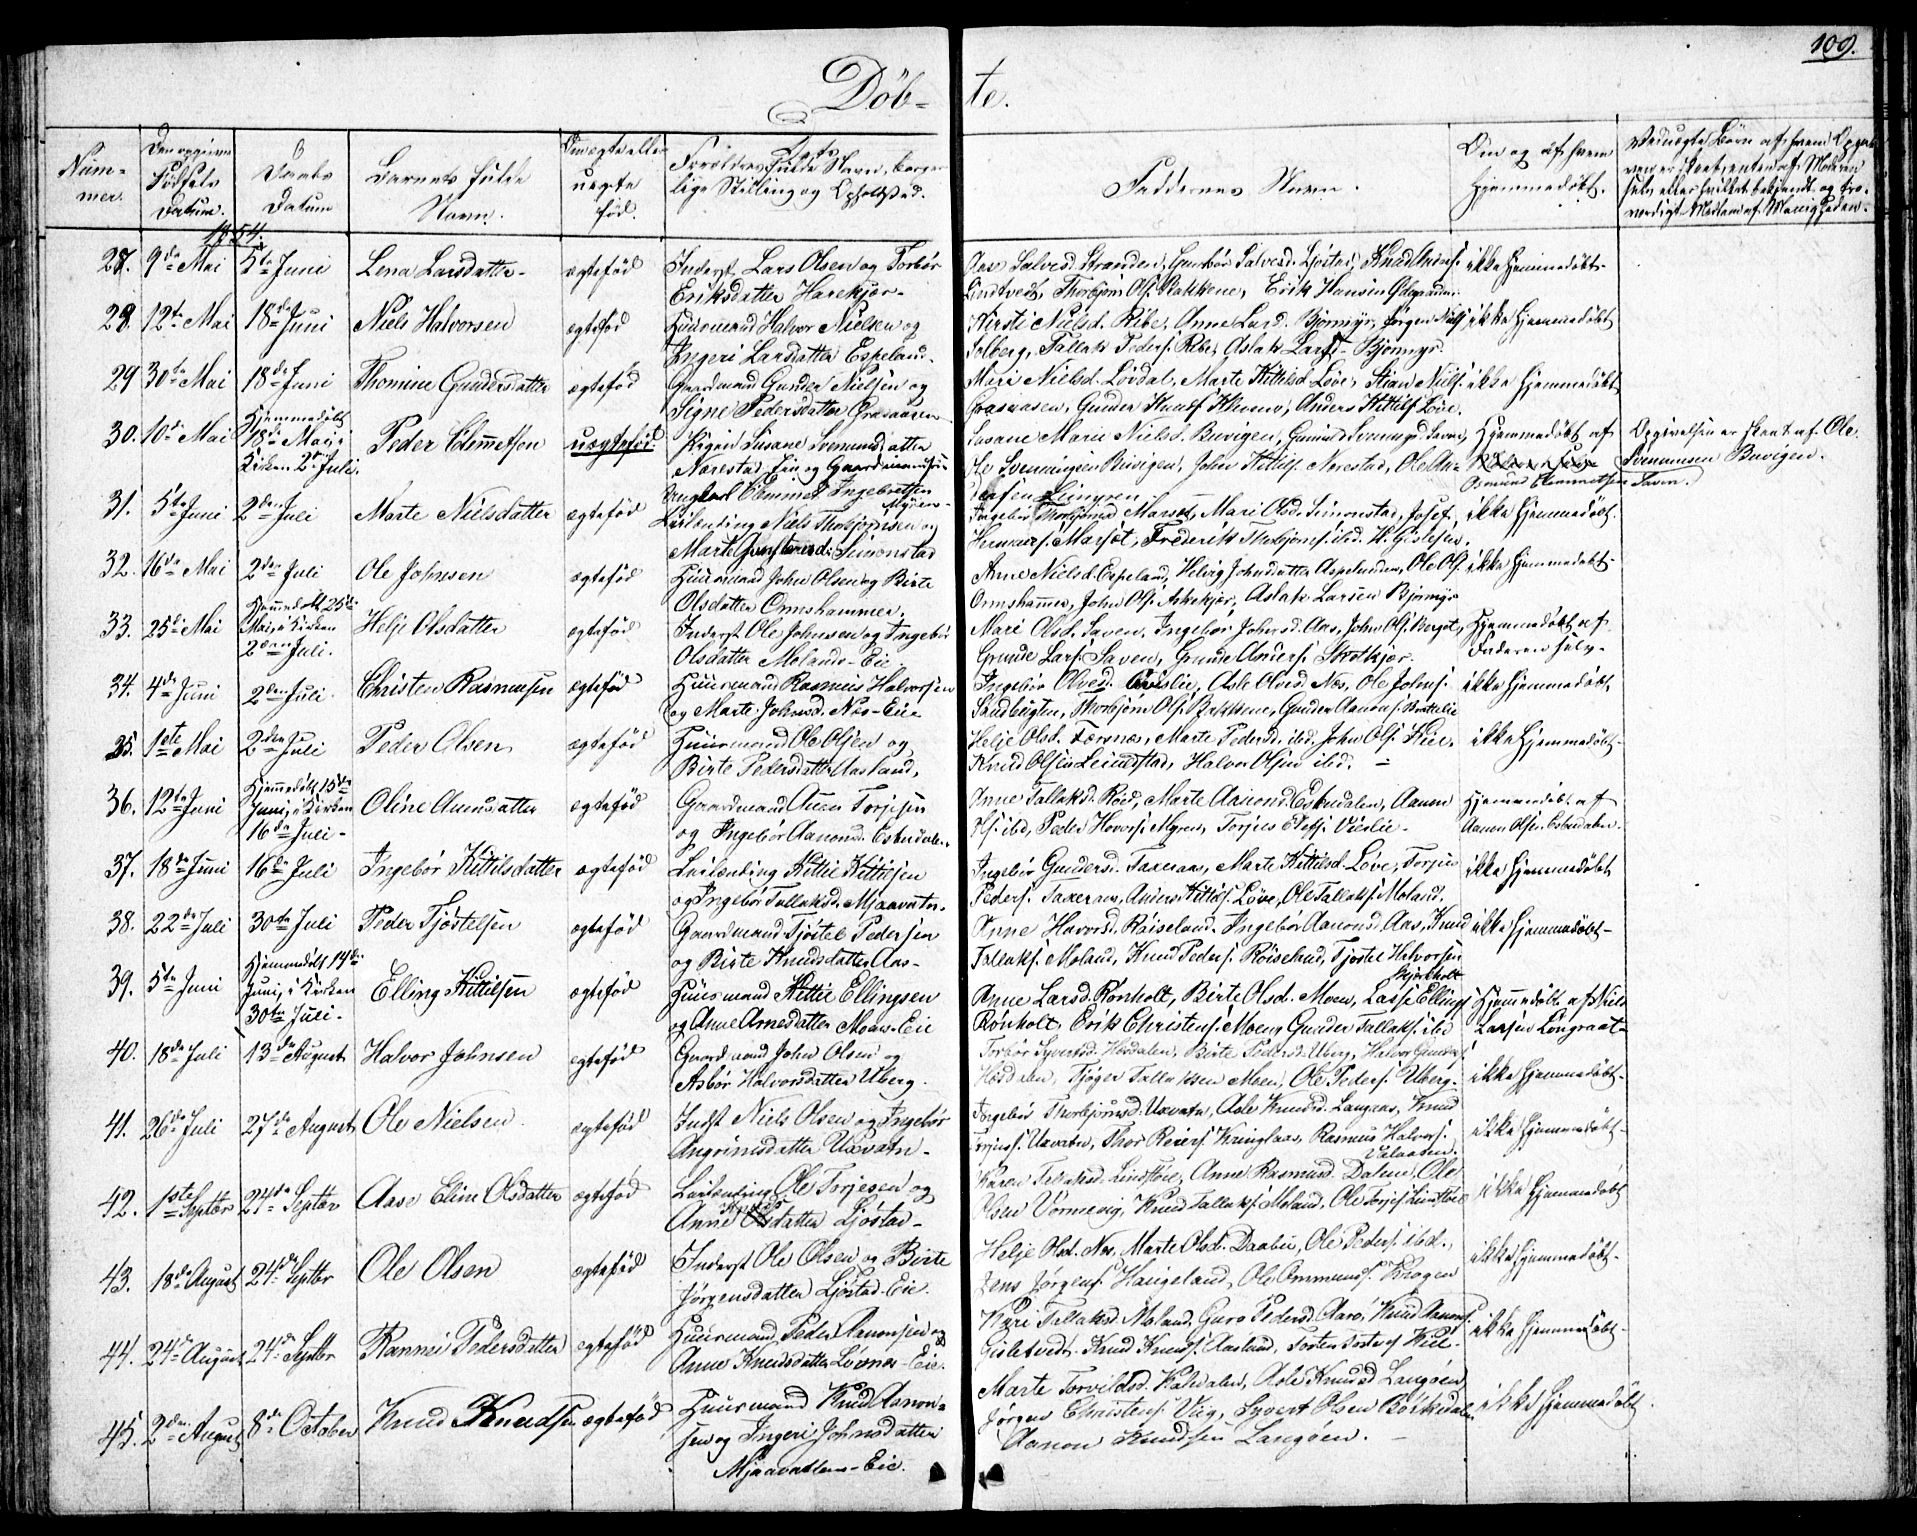 109.
Döb- te.
Num-
mer.
Den opgivne
Födsels
Datum.
Daabs
Datum
Barnets fulde
Navn.
Om ægte eller
uægte
fød.
Forældrenes fulde Navn, borger-
lige Stilling og Opholdssted.
Faddernes Navn.
Om og af hvem
hjemmedøbt.
1854.
27. 9de Mai 5te Juni Lena Larsdatter ægtefød Inderst Lars Olsen og Torbör
Eriksdatter Harekjær.
Aase Salvesd. Stranden, Gunbör Salvesd. Ljöstad, Knud
Lindtvedt, Thorbjörn Ols. Bakkene, Erik Hansen
ikke hjemmedøbt.
28. 12te Mai 18de Juni Niels Halvorsen ægtefød Huusmand Halvor Nielsen og
Ingeri Larsdatter Espeland.
Kirsti Nielsd. Ribe, Anne Larsd. Bjørmyr, Jørgen Niels.
Solberg, Tallak Peders. Ribe, Aslak Lars. Bjørmyr.
ikke hjemmedøbt
29 30te Mai 18de Juni Thomine Gundersdatter ægtefød Gaardmand Gunder Nielsen og
Signe Pedersdatter Grasaasen
Mari Nielsd. Lövdal, Marte Kittilsd. Löve, Stian Niels.
Grasaasen, Gunder Knuds. , Anders Kittils. Löve.
ikke hjemmedøbt
30. 10de Mai Hjemmedøbt
18de Mai, i
Kirken 2den Juli.
Peder Clemetsen uægtefød. Pigen Susane Svenumsdatter
Narestad, Eie og Gaardmandssøn
Ungkarl Clemmet Ingebretsen
Myren.
Susane Marie Nielsd. Buvigen, Gunild Svenungsd. Saven,
Ole Svenningsen Buvigen, John Kittils. Narestad, Ole An-
dersen Lingren
Hjemmedøbt af
Osmund Clemmetsen Saven.
Opgivelsen er skeet af Ole
Svenumsen Buvigen.
31. 5te Juni 2den Juli Marte Nielsdatter ægtefød Leilending Niels Thorbjørnsen og
Marte Gunstensd. Simonstad
Ingebör Thorbjørnsd. Marsöt, Mari Olsd. Simonstad, Josef
Hermans. Marsöt, Frederik Thorbjørns. ibid. H. Gislesen.
ikke hjemmedøbt.
32. 16de Mai 2den Juli Ole Johnsen ægtefød Huusmand John Olsen og Birte
Olsdatter Ormshammer.
Anne Nielsd. Espeland, Helvig Johnsdatter Espelanden, Ole Ols.
Ormshammer, John Ols. Askekjær, Aslak Larsen Bjørmyr
ikke hjemmedøbt.
33. 25de Mai Hjemmedøbt 25de
Mai, i Kirken
2den Juli.
Helje Olsdatter ægtefød Inderst Ole Johnsen og Ingebör
Olsdatter Molands-Eie
Mari Olsd. Saven, Ingebör Johnsd. Aas, John Ols. Bergöt,
Grunde Lars. Saven, Grunde Anders. Skotkjær.
Hjemmedøbt af
Faderen selv.
34. 4de Juni 2den Juli. Christen Rasmussen ægtefød Huusmand Rasmus Halvorsen
og Marte Johnsd. Næs-Eie
Ingebör Olvsd. , Asle Olvsd. Næs, Ole Johns.
Sandbugten, Thorbjørn Ols. Bakkene, Gunder Aanons. Brattelie
ikke hjemmedøbt.
35. 1ste Mai 2den Juli Peder Olsen ægtefød Huusmand Ole Olsen og
Birte Pedersdatter Aasland,
Helje Olsd. Færsnæs, Marte Pedersd. ibid. John Ols. Hüe.
Knud Olsen Leiulfstad, Halvor Olsen ibid.
ikke hjemmedøbt.
36. 12te Juni Hjemmedøbt 15de
Juni, i Kirken
16de Juli.
Oline Aunsdatter ægtefød Gaardmand Auen Torjesen
og Ingebör Aanonsd. Eskedalen.
Anne Tallaksd. Röed, Marte Aanonsd. Eskedalen, Aanon
Ols. ibid, Peder Hovors. Myren, Torjus Vierlie.
Hjemmedøbt af
Aanon Olsen Eskedalen.
37. 18de Juni 16de Juli Ingebör Kittilsdatter ægtefød Leilending Kittil Kittilsen
og Ingebör Tallaksd. Mjaavatn.
Ingebör Gundersd. Taxeraas, Marte Kittilsd. Löve, Torjus
Peders. Taxeraas, Anders Kittils. Löve, Ole Tallaks. Moland.
ikke hjemmedøbt
38. 22de Juli 30te Juli Peder Tjöstelsen ægtefød Gaardmand Tjöstel Pedersen
og Birte Knudsdatter Aas.
Anne Havorsd. Röiseland, Ingebör Aanonsd. Aas, Knud
Tallaks. Moland, Knud Peders. Röiseland, Tjöstel Halvorsen
Bjorkholt
ikke hjemmedøbt.
39. 5te Juni Hjemmedøbt 14de
Juni, i Kirken
30te Juli.
Elling Kittilsen ægtefød Huusmand Kittil Ellingsen
og Anne Arnesdatter Moens-Eie
Anne Larsd. Rönholt, Birte Olsd. Moen, Lasse Ellings.
Rönholt, Erik Christens. Moen, Gunder Tallaks. ibid
Hjemmedøbt af Niels
Larsen Longraat.
40. 18de Juli 13de August Halvor Johnsen ægtefød Gaardmand John Olsen og
Asbör Halvorsdatter Uberg.
Torbör Syvertsd. Hesdalen, Birte Pedersd. Uberg, Halvor Gunders.
Hesdalen, Tjöger Tallaksen Moen, Ole Peders. Uberg.
ikke hjemmedøbt.
41. 26de Juli 27de August Ole Nielsen ægtefød Indst Niels Olsen og Ingebör
Angrimsdatter Uxvatn.
Ingebör Thorbjørnsd. Uxvatn, Asle Knudsd. Langaas, Knud
Torjuss. Uxvatn, Thor Reiers. Kringlaas, Rasmus Halvors.
ikke hjemmedøbt.
42. 1ste Septbr 24de Septbr Aase Eline Olsdatter ægtefød Leilending Ole Torjesen og
Anne Olsdatter Ljöstad.
Karen Tallaksd. Lindtöie, Anne Rasmusd. Dalen, Ole
Olsen Vormevig, Knud Tallaks. Moland, Ole Torjes. Lindtöie
ikke hjemmedøbt
43. 18de August 24de Septbr Ole Olsen ægtefød Inderst Ole Olsen og Birte
Jørgensdatter Ljöstad-Eie.
Helje Olsd. Næs, Marte Olsd. Daabu, Ole Peders. ibid.,
Jens Jörgens. Haugeland, Ole Ommunds. Krogen
ikke hjemmedøbt.
44. 24de August 24de Septbr Rannei Pedersdatter ægtefød Huusmand Peder Aanonsen og
Anne Knudsdatter Lövnæs-Eie.
Kari Tallaksd. Moland, Guro Pedersd. Aas, Knud Aanons.
Gisletvedt, Knud Knuds. Aasland, Torsten Hüe.
ikke hjemmedøbt.
45. 2den August 8de October Knud Knudsen ægtefød Huusmand Knud Aanon-
sen og Ingeri Johnsdatter
Mjaavatten-Eie.
Marte Torvildsd. Kaldalen, Asle Knudsd. Langöen
Jörgen Christens. Viig, Syvert Olsen Böikedalen
Aanon Knudsen Langöen.
ikke hjemmedøbt.